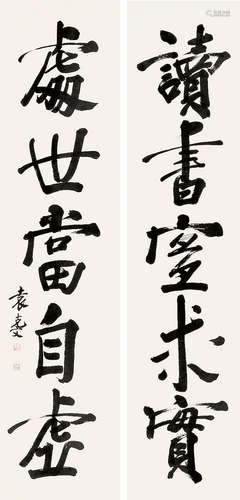 讀書宜求實
處世當自虛
袁克文